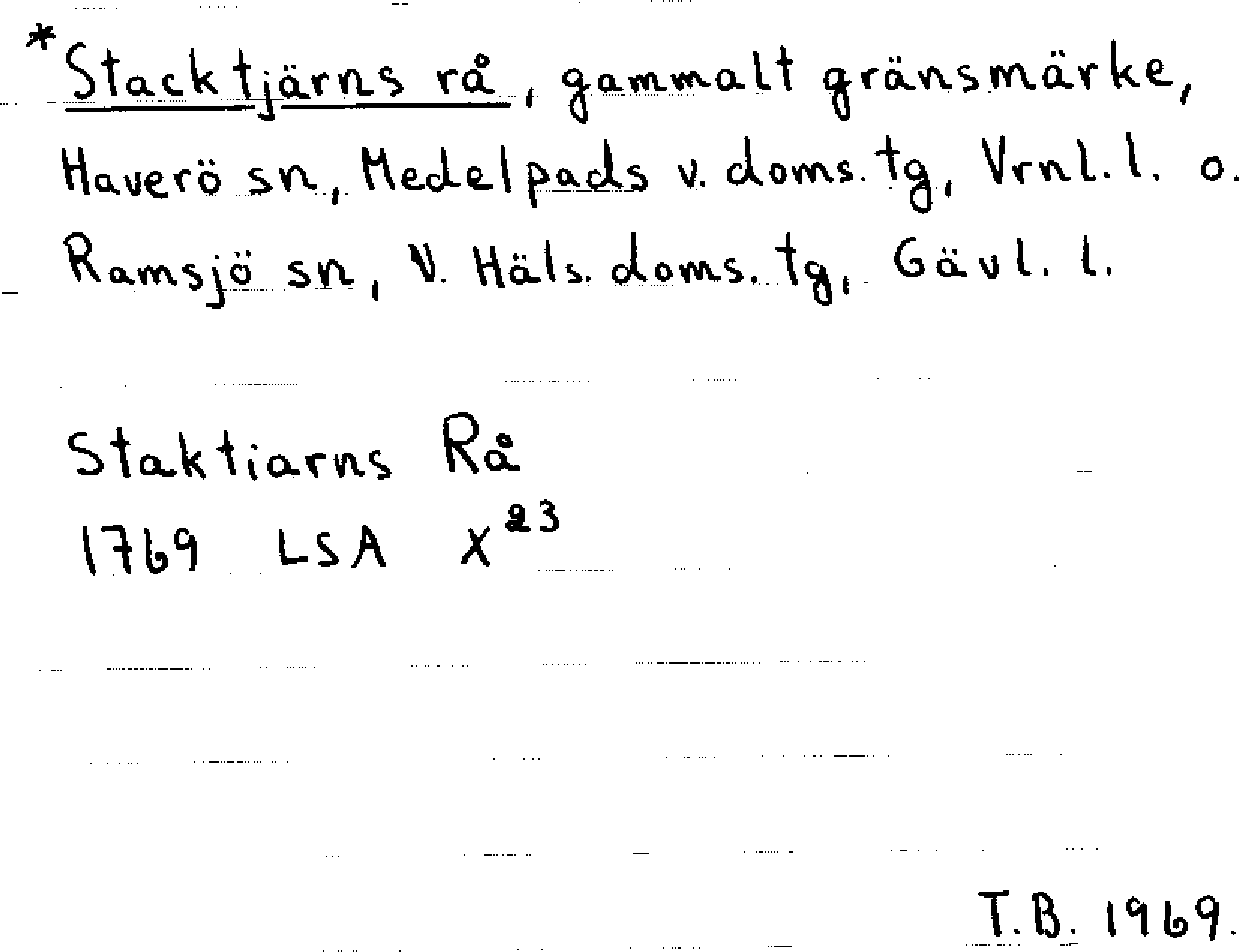 *Stacktjärns rå, gammalt gränsmärke,
Haverö sn, Medelpads v. doms. tg, Vrnl. l. o.
Ramsjö sn, V. Häls. doms. tg, Gävl. l.
Staktiarns Rå
1769 LSA X²³
T.B. 1969.